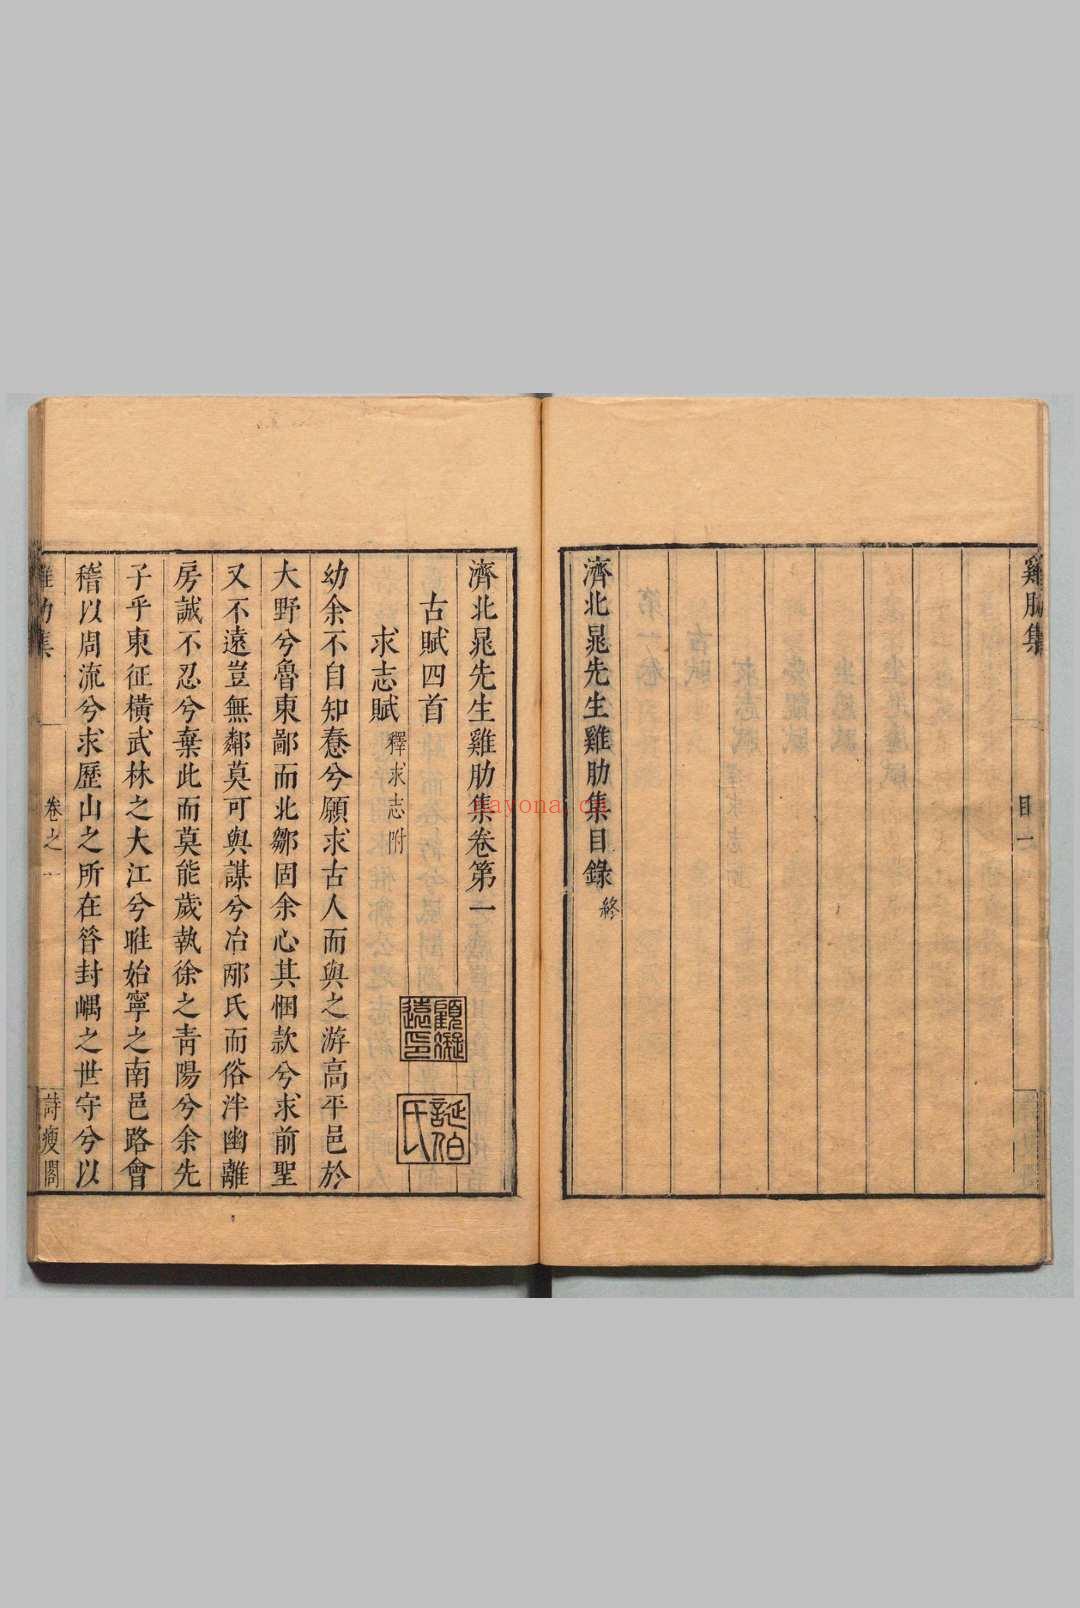 雞肋集
目一
濟北晁先生雞肋集目錄終
濟北晁先生雞肋集卷第一
古賦四首
求志賦 釋求志附
幼余不自知惷兮願求古人而與之游高平邑於
大野兮魯東鄙而北鄒固余心其悃款兮求前聖
又不遠豈無鄰莫可與謀兮冶邴氏而俗泮幽離
房誠不忍兮棄此而莫能歲執徐之青陽兮余先
子乎東征橫武林之大江兮雎始寧之南邑路會
稽以周流兮求歷山之所在昝封嵎之世守兮以
雞肋集
卷之一
詩瘦閣
顧凝遠印
誕伯氏